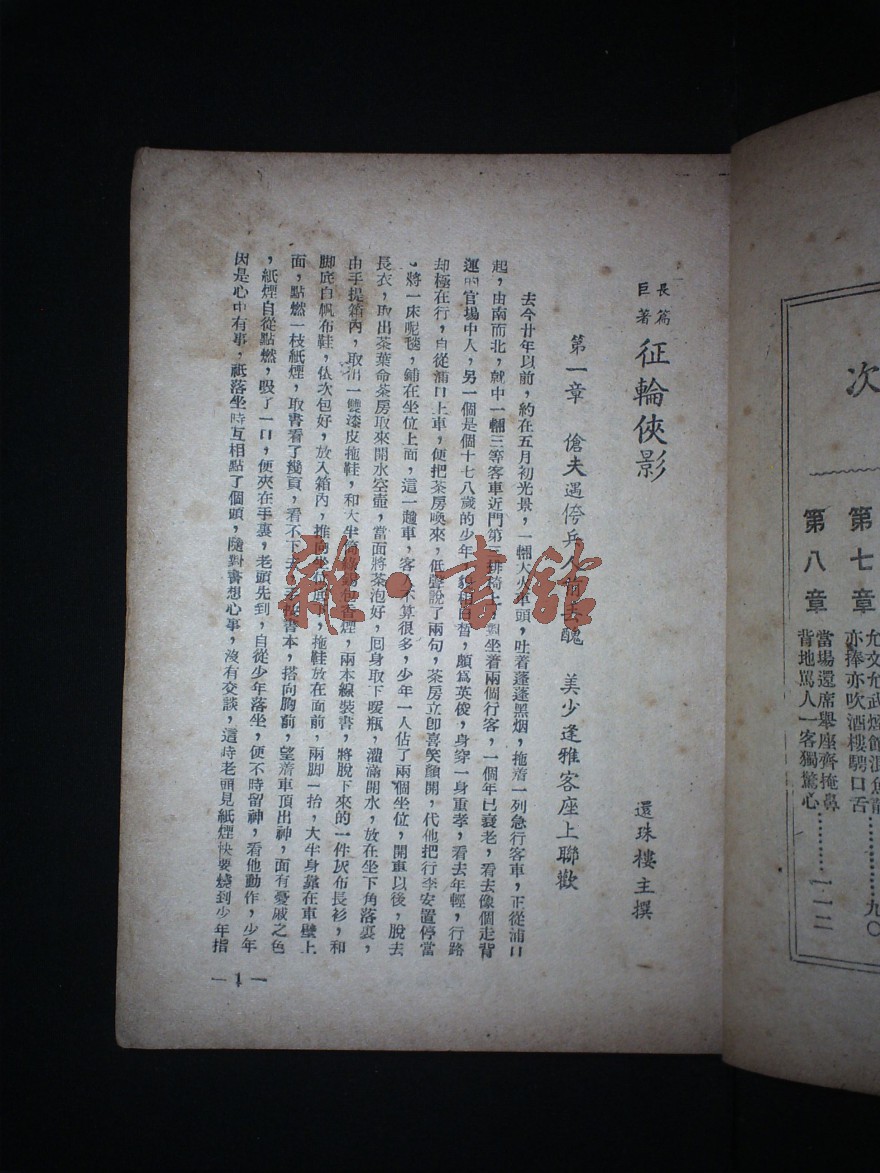 次
第七章
允文允武煙館混魚龍
亦捧亦吹酒樓騁口舌
九〇
第八章
當場還席舉座齊掩鼻
背地罵人一客獨驚心
一一二
長篇
巨著
征輪俠影
還珠樓主撰
第一章 傖夫遇侉兵人前丟醜 美少逢雅客座上聯歡
去今廿年以前，約在五月初光景，一輛大火車頭，吐着蓬蓬黑烟，拖着一列急行客車，正從浦口
起，由南而北，就中一輛三等客車近門第三排椅上，對坐着兩個行客，一個年已衰老，看去像個走背
運的官場中人，另一個是個十七八歲的少年，貌相白皙，頗爲英俊，身穿一身重孝，看去年輕，行路
却極在行，自從浦口上車，便把茶房喚來，低聲說了兩句，茶房立卽喜笑顏開，代他把行李安置停當
，將一床呢毯，鋪在坐位上面，這一趟車，客人不算很多，少年一人佔了兩個坐位，開車以後，脫去
長衣，取出茶葉命茶房取來開水空壺，當面將茶泡好，囘身取下暖瓶，灌滿開水，放在坐下角落裏，
由手提箱內，取出一雙漆皮拖鞋，和大半筒 香煙，兩本線裝書，將脫下來的一件灰布長衫，和
脚底白帆布鞋，依次包好，放入箱內，推向坐位底下，拖鞋放在面前，兩脚一抬，大半身靠在車壁上
面，點燃一枝紙煙，取書看了幾頁，看不下去，手按書本，搭向胸前，望着車頂出神，面有憂戚之色
，紙煙自從點燃，吸了一口，便夾在手裏，老頭先到，自從少年落坐，便不時留神，看他動作，少年
因是心中有事，祇落坐時互相點了個頭，隨對書想心事，沒有交談，這時老頭見紙煙快要燒到少年指
—1—
雜·書館